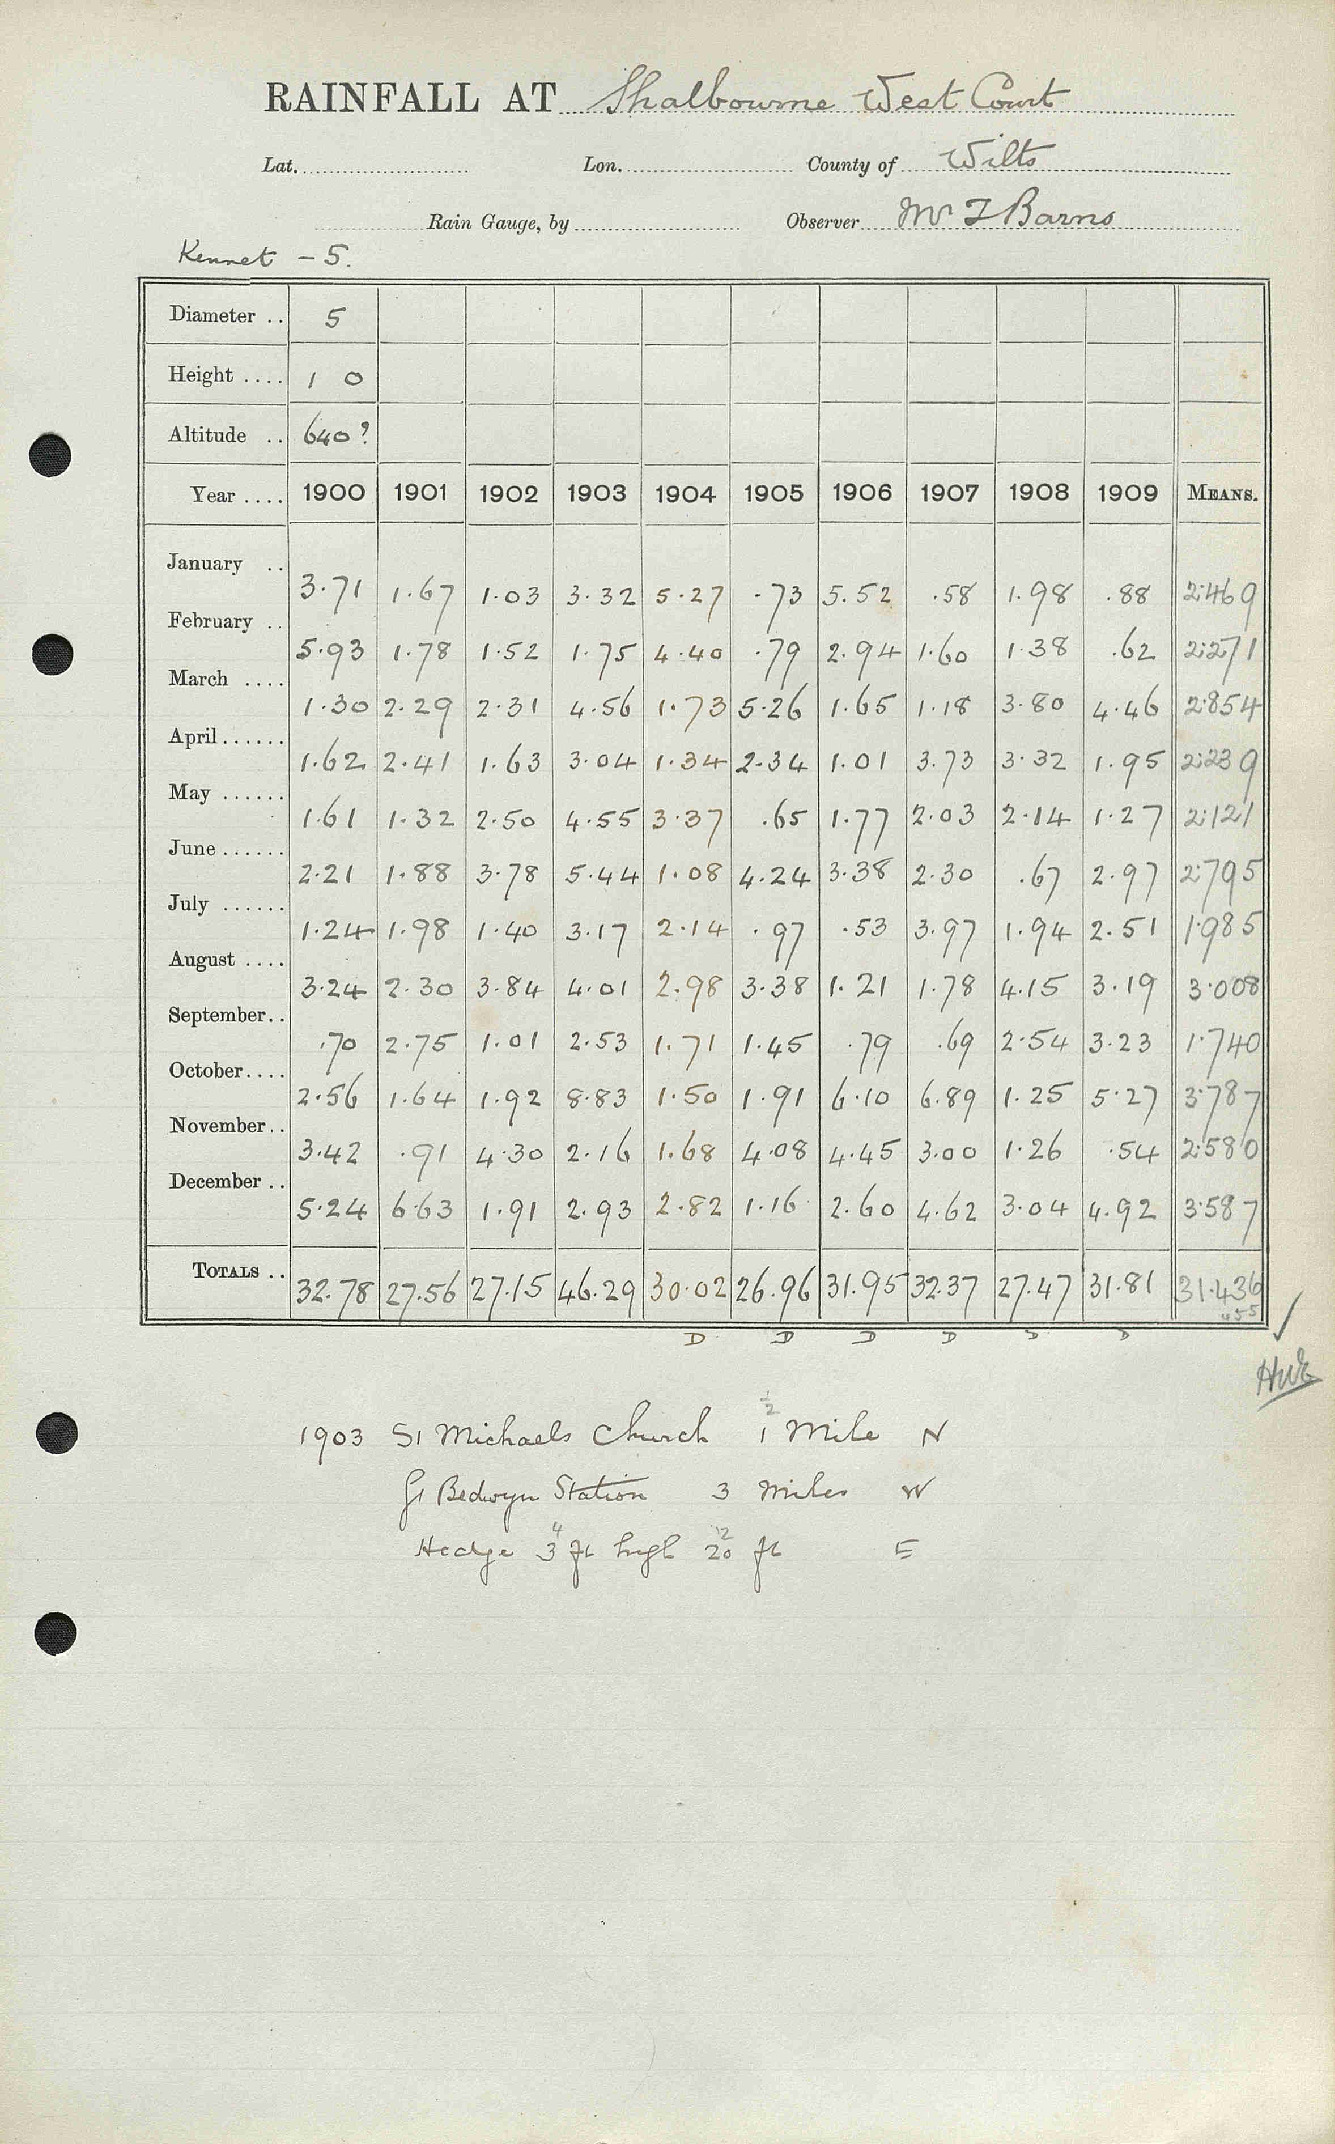 RAINFALL AT Shalbourne West Court
Lat. Lon. County of Wilts
Rain Gauge, by Observer Mr T Barns
Kennet – 5.
Diameter .. 5
Height .... 1 0
Altitude .. 640?
Year .... 1900 1901 1902 1903 1904 1905 1906 1907 1908 1909 MEANS.
January .. 3.71 1.67 1.03 3.32 5.27 .73 5.52 .58 1.98 .88 2.469
February .. 5.93 1.78 1.52 1.75 4.40 .79 2.94 1.60 1.38 .62 2.271
March .... 1.30 2.29 2.31 4.56 1.73 5.26 1.65 1.18 3.80 4.46 2.854
April...... 1.62 2.41 1.63 3.04 1.34 2.34 1.01 3.73 3.32 1.95 2.239
May ...... 1.61 1.32 2.50 4.55 3.37 .65 1.77 2.03 2.14 1.27 2.121
June...... 2.21 1.88 3.78 5.44 1.08 4.24 3.38 2.30 .67 2.97 2.795
July ...... 1.24 1.98 1.40 3.17 2.14 .97 .53 3.97 1.94 2.51 1.985
August .... 3.24 2.30 3.84 4.01 2.98 3.38 1.21 1.78 4.15 3.19 3.008
September.. .70 2.75 1.01 2.53 1.71 1.45 .79 .69 2.54 3.23 1.740
October.... 2.56 1.64 1.92 8.83 1.50 1.91 6.10 6.89 1.25 5.27 3.787
November.. 3.42 .91 4.30 2.16 1.68 4.08 4.45 3.00 1.26 .54 2.580
December .. 5.24 6.63 1.91 2.93 2.82 1.16 2.60 4.62 3.04 4.92 3.587
TOTALS .. 32.78 27.56 27.15 46.29 30.02 26.96 31.95 32.37 27.47 31.81 31.436
455
D D D D D D
1903 St Michaels Church 1 Mile N
1/2
Gt Bedwyn Station 3 Miles W
4 12
Hedge 3 ft high 20 ft E